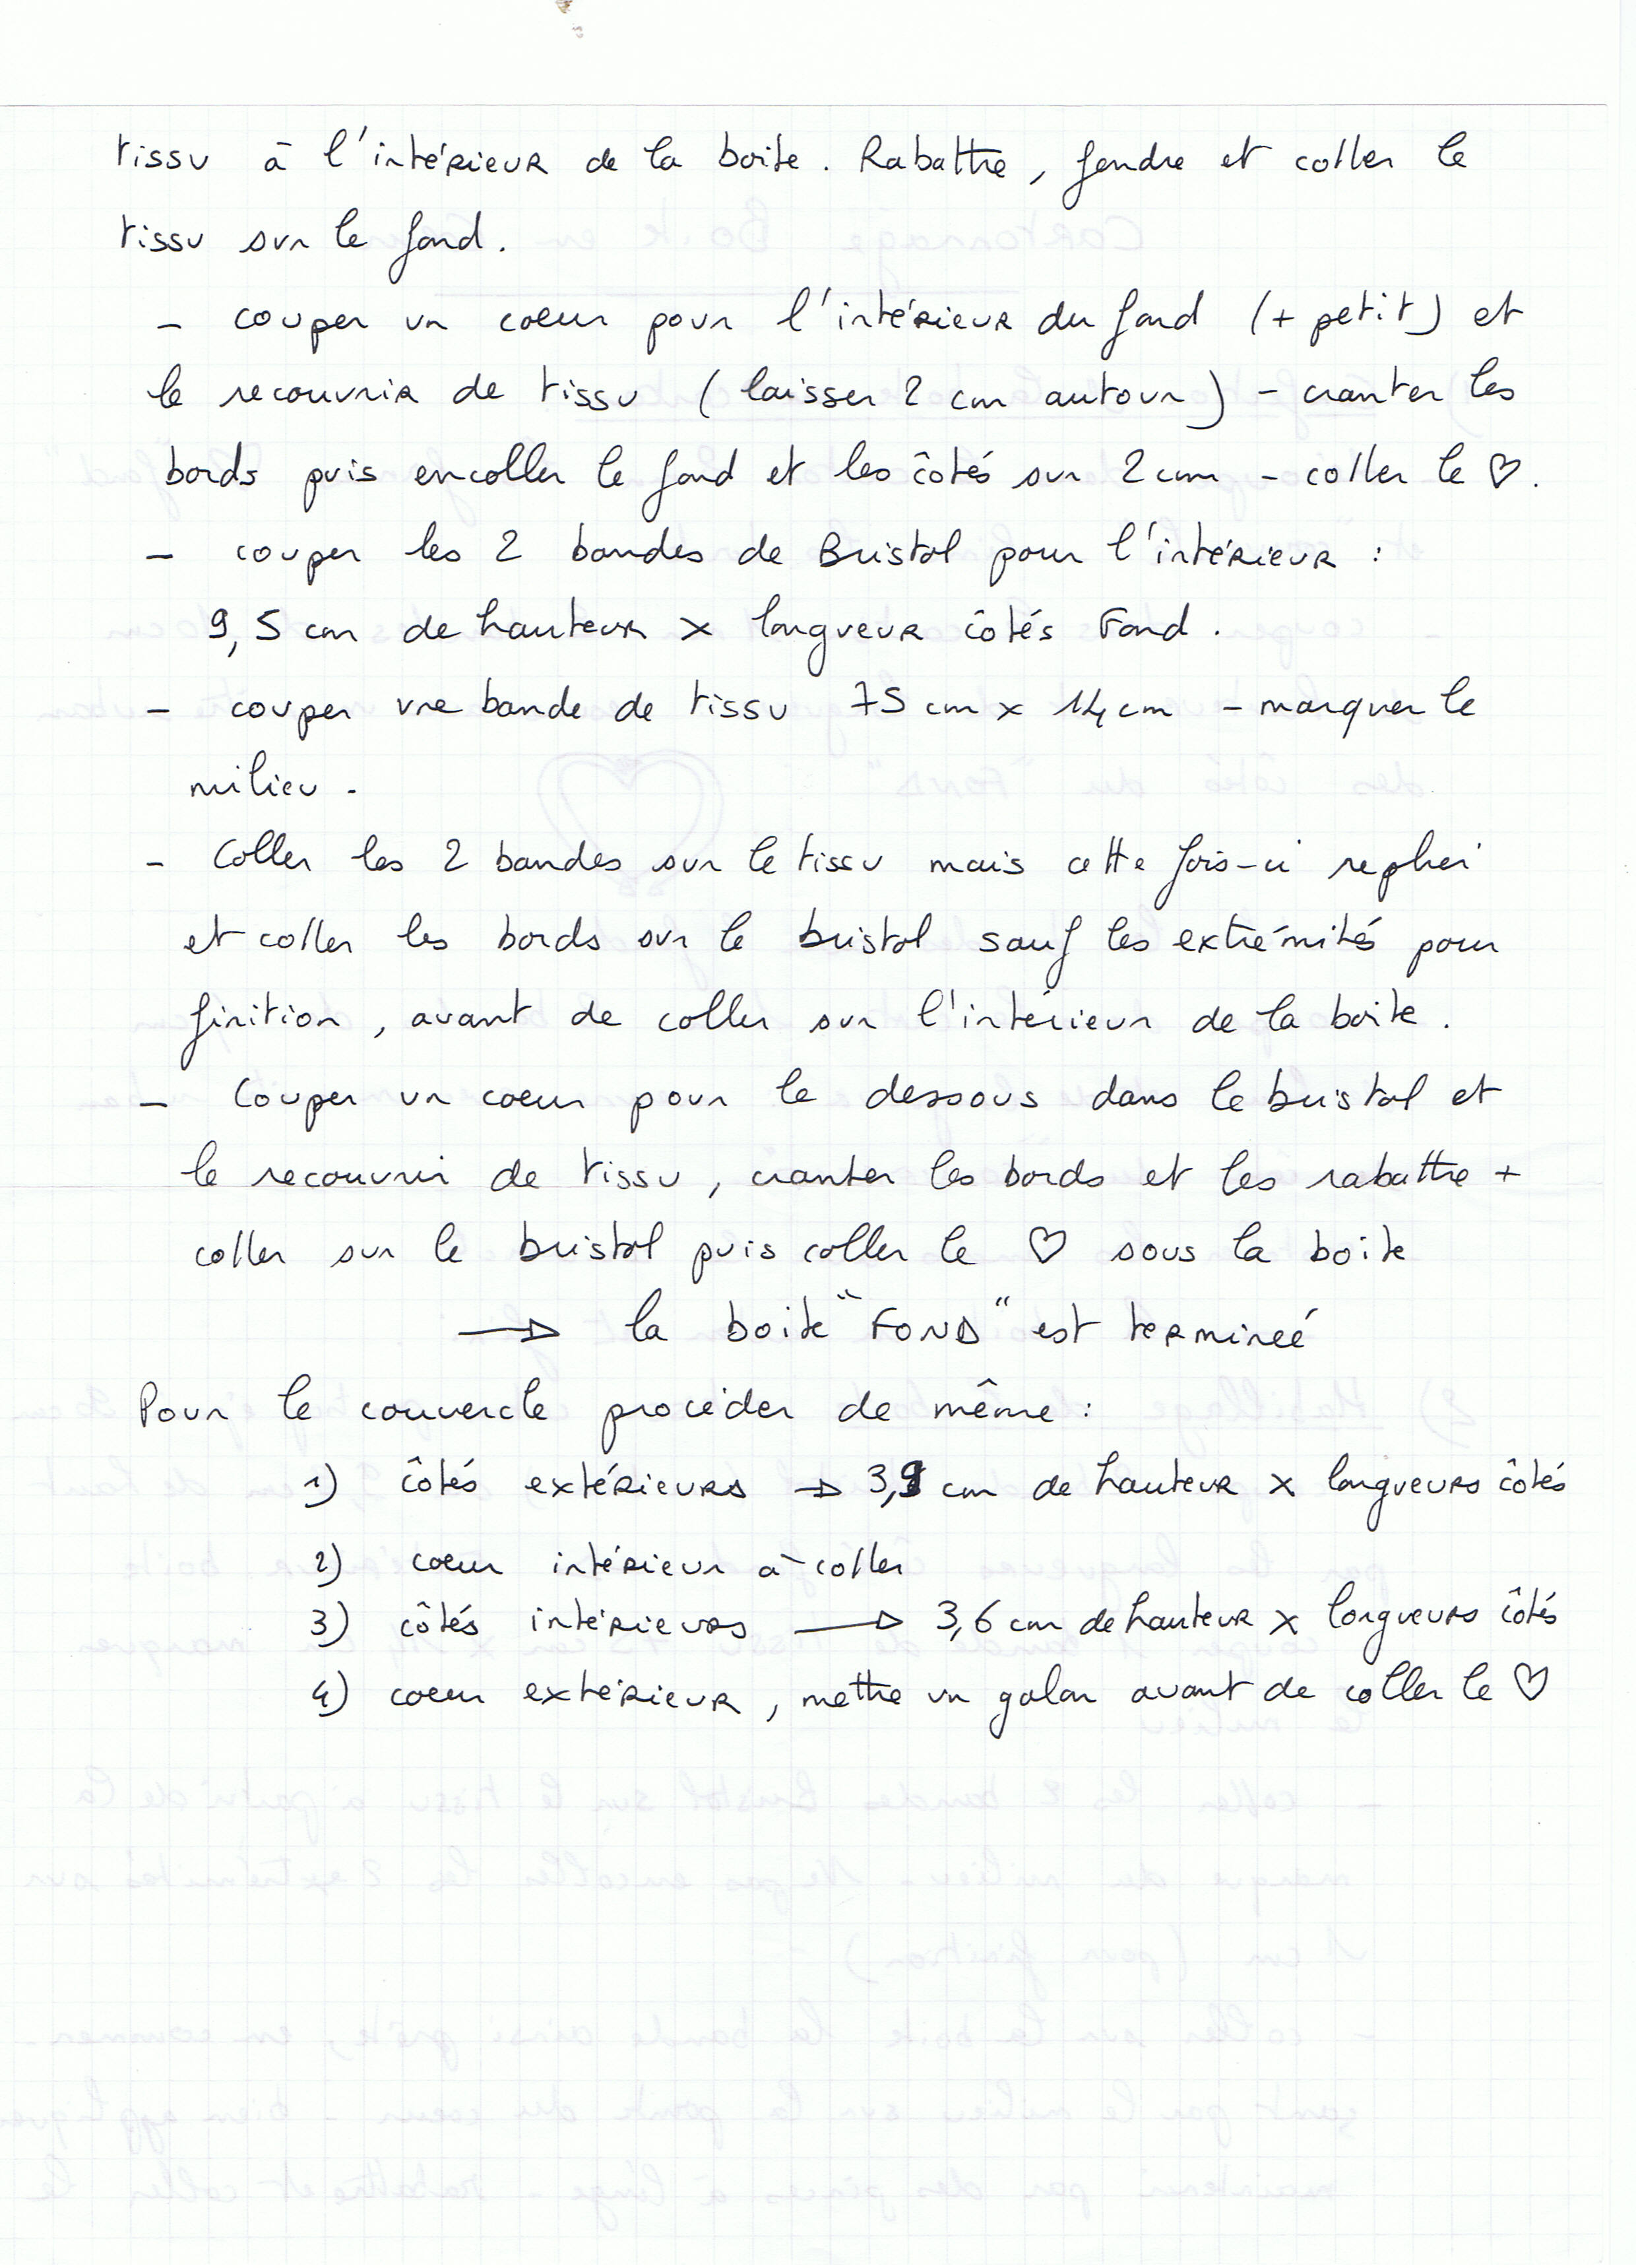 tissu à l'intérieur de la boite. Rabattre, fendre et coller le
tissu sur le fond.
- couper un coeur pour l'intérieur du fond (+ petit) et
le recouvrir de tissu (laisser 2 cm autour) - cranter les
bords puis encoller le fond et les côtés sur 2 cm - coller le ♡.
- couper les 2 bandes de Bristol pour l'intérieur :
9,5 cm de hauteur x longueur côtés Fond.
- couper une bande de tissu 75 cm x 14 cm - marquer le
milieu -
- Coller les 2 bandes sur le tissu mais cette fois-ci replier
et coller les bords sur le bristol sauf les extrémités pour
finition, avant de coller sur l'intérieur de la boite.
- Couper un coeur pour le dessous dans le bristol et
le recouvrir de tissu, cranter les bords et les rabattre +
coller sur le bristol puis coller le ♡ sous la boite
→ la boite "FOND" est terminée
Pour le couvercle procéder de même :
1) côtés extérieurs → 3,9 cm de hauteur x longueurs côtés
2) coeur intérieur à coller
3) côtés intérieurs → 3,6 cm de hauteur x longueurs côtés
4) coeur extérieur, mettre un galon avant de coller le ♡